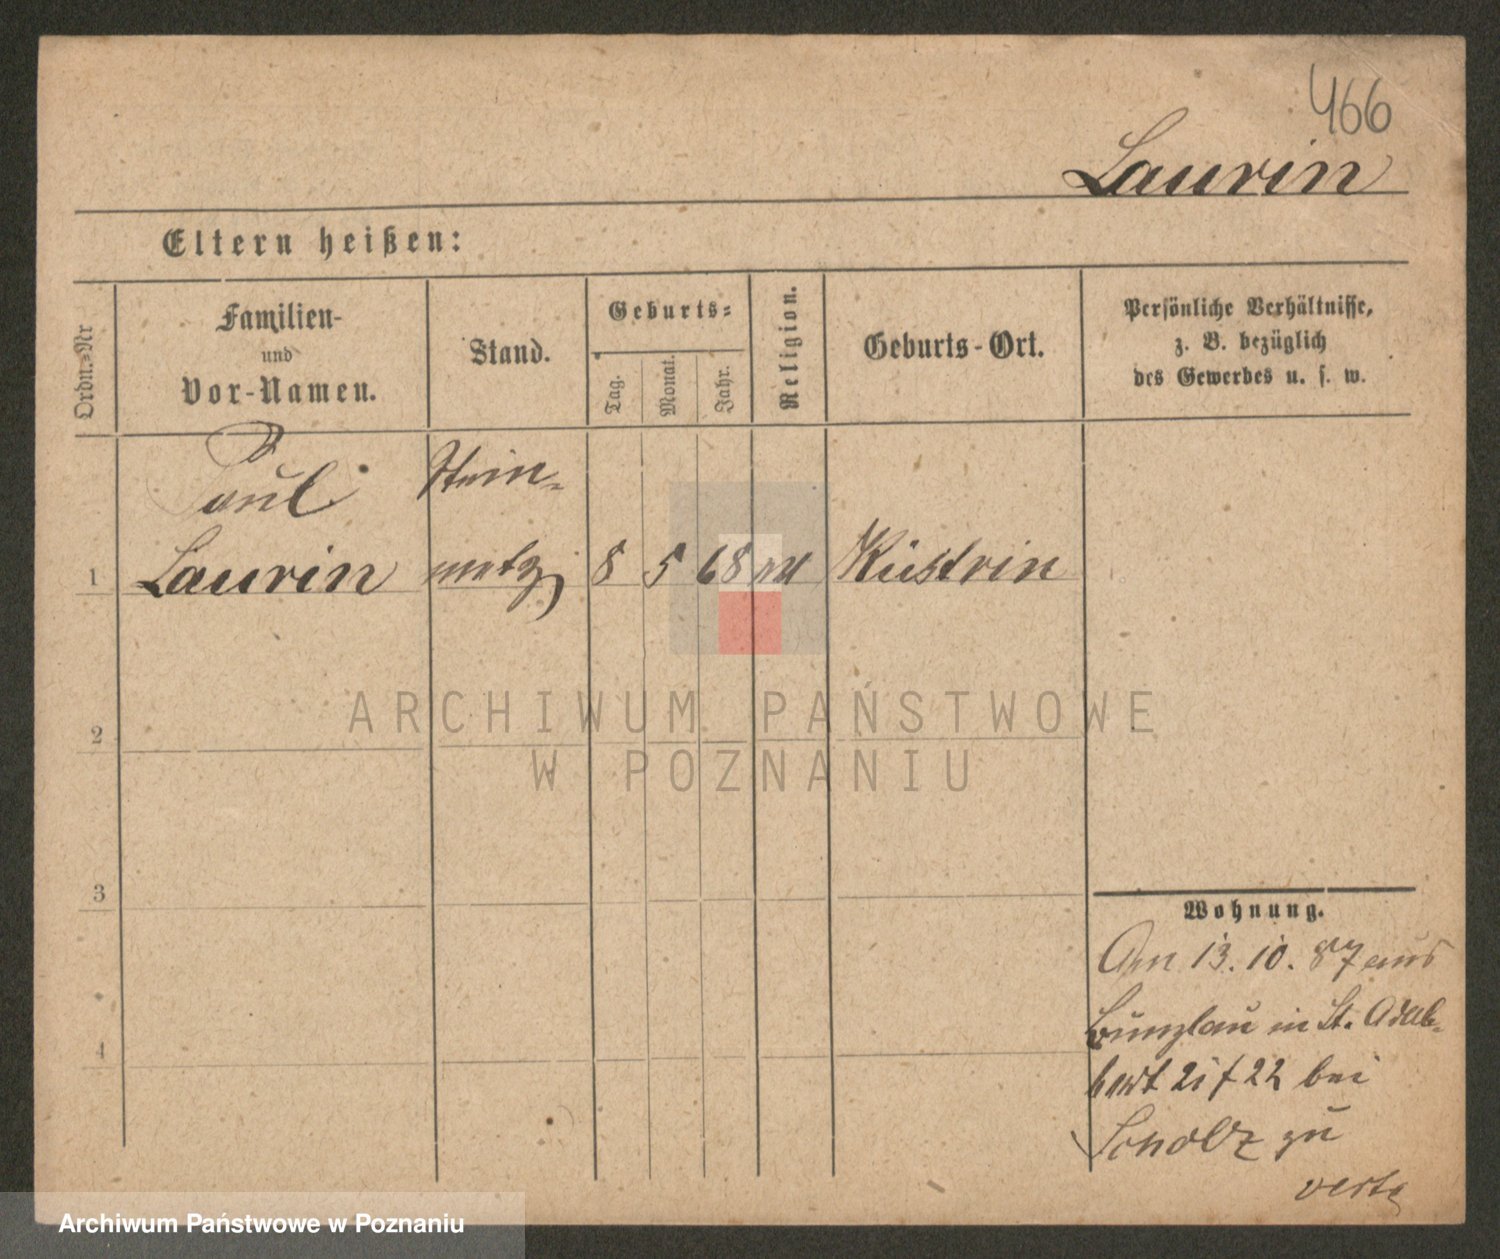 466
Laurin
Eltern heißen:
Ordn.=Nr
Familien-
und
Vor-Namen.
Stand.
Geburts=
Tag.
Monat.
Jahr.
Religion.
Geburts-Ort.
Persönliche Verhältnisse,
z. B. bezüglich
des Gewerbes u. s. w.
Paul Stein-
1 Laurin metz 8 5 68 Küstrin
2
3
4
ARCHIWUM PAŃSTWOWE
W POZNANIU
Wohnung.
Am 13.10.87 aus
Bunzlau in St. Adal-
bert 22 bei
Scholz zu
Archiwum Państwowe w Poznaniu